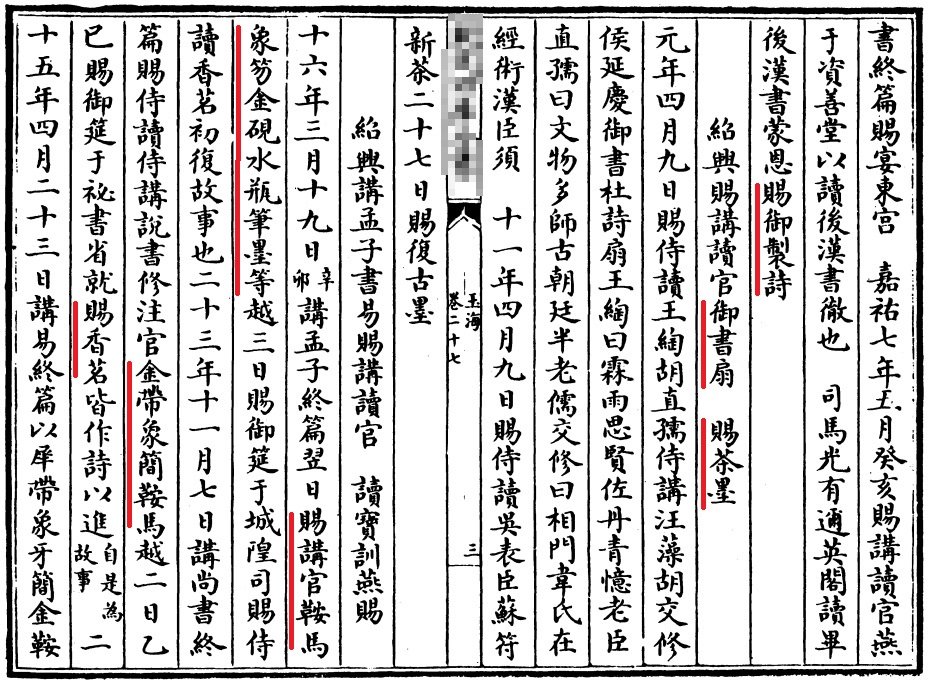 書終篇賜宴東宮　嘉祐七年五月癸亥賜講讀官燕
于資善堂以讀後漢書徹也　司馬光有邇英閣讀畢
後漢書蒙恩賜御製詩
紹興賜講讀官御書扇　賜茶墨
元年四月九日賜侍讀王綯胡直孺侍講汪藻胡交修
侯延慶御書杜詩扇王綯曰霖雨思賢佐丹青憶老臣
直孺曰文物多師古朝廷半老儒交修曰相門韋氏在
經術漢臣須　十一年四月九日賜侍讀吳表臣蘇符
新茶二十七日賜復古墨
玉海
卷二十七
三
紹興講孟子書易賜講讀官　讀寶訓燕賜
十六年三月十九日辛卯講孟子終篇翌日賜講官鞍馬
象笏金硯水瓶筆墨等越三日賜御筵于城隍司賜侍
讀香茗初復故事也二十三年十一月七日講尚書終
篇賜侍讀侍講說書修注官金帶象簡鞍馬越二日乙
巳賜御筵于祕書省就賜香茗皆作詩以進自是為故事二
十五年四月二十三日講易終篇以犀帶象牙簡金鞍